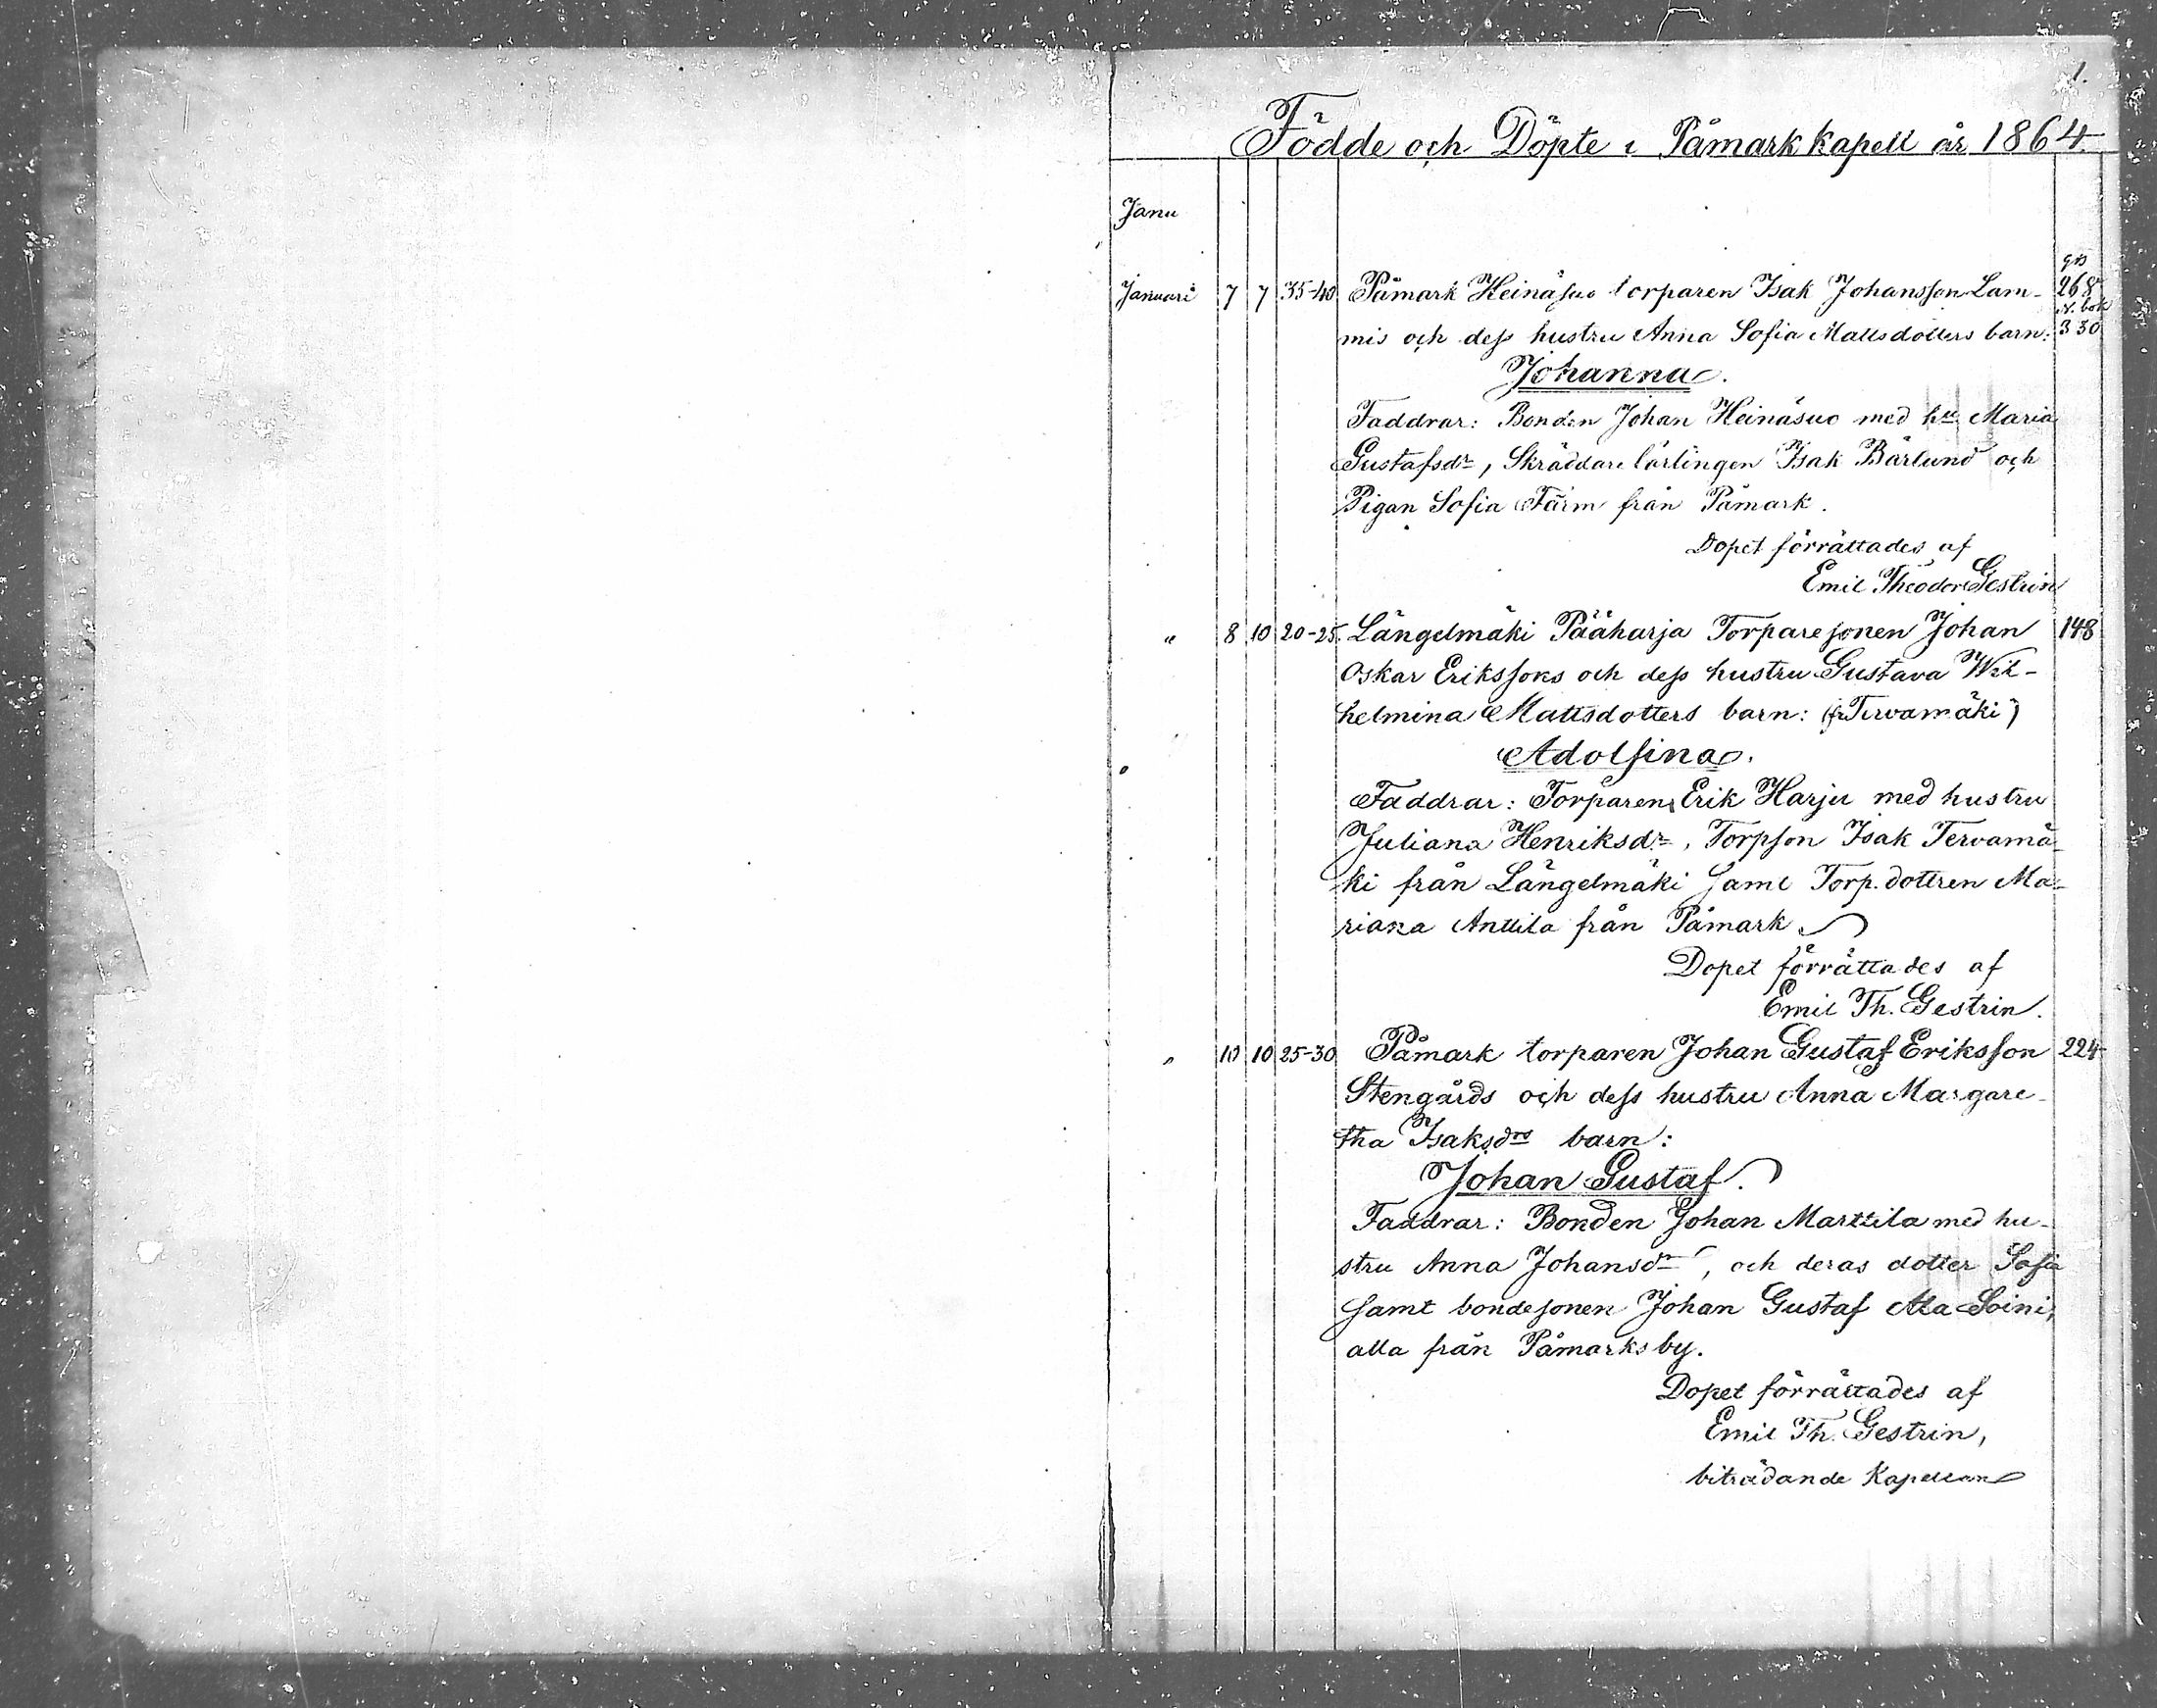 1.
Födde och Döpte i Påmark Kapell år 1864.
Janu
Januari 7 7 35-40 Påmark Heinäsuo torparen Isak Johansson Lam- 268
mis och dess hustru Anna Sofia Mattsdotters barn: N. bok 330
Johanna.
Faddrar: Bonden Johan Heinäsuo med hu Maria
Gustafsdr, Skräddare lärlingen Isak Bärlund och
Pigan Sofia Färm från Påmark.
Dopet förrättades af
Emil Theodor Gestrin
" 8 10 20-25. Längelmäki Pääharja Torparesonen Johan 148
Oskar Erikssons och dess hustru Gustava Wil-
helmina Mattsdotters barn: (fr Tervamäki)
Adolfina.
Faddrar: Torparen Erik Harju med hustru
Juliana Henriksdr, Torpson Isak Tervamä-
ki från Längelmäki samt Torp. dottren Ma-
riana Anttila från Påmark
Dopet förrättades af
Emil Th. Gestrin.
" 10 10 25-30 Påmark torparen Johan Gustaf Eriksson 224
Stengårds och dess hustru Anna Margare-
tha Isaksdrs barn:
Johan Gustaf.
Faddrar: Bonden Johan Marttila med hu-
stru Anna Johansdr, och deras dotter Sofia
samt bondesonen Johan Gustaf Ala Soini,
alla från Påmarks by.
Dopet förrättades af
Emil Th. Gestrin,
biträdande Kapellan